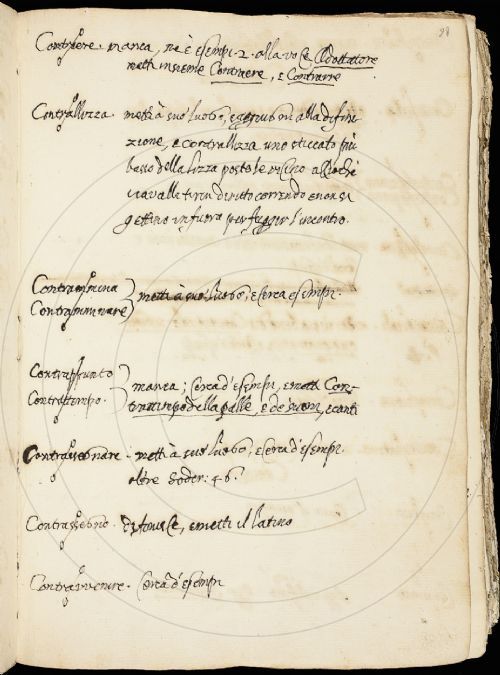 Contraere. manca, ne è esempi. 2. alla voce Adottatore
metti insieme Contraere, e Contrarre
Contrallizza. metti à suo luogo, e aggiugni alla difini
zione, e contrallizza uno steccato più
basso della lizza posto le
i cavalli diritto correndo e non si
gettino in fuora per fuggir l'incontro.
Contrammina
Contramminare metti à suo luogo, e cerca esempi.
Contrappunto
Contrattempo. manca; cerca d'esempi, e metti Con-
trattempo della palla, e de' suoni, e canti
Contrassegnare. metti à suo luogo, e cerca d'esempi.
oltre Soder: 46.
Contrassegno. e metti il latino
Contravvenire. cerca d'esempi